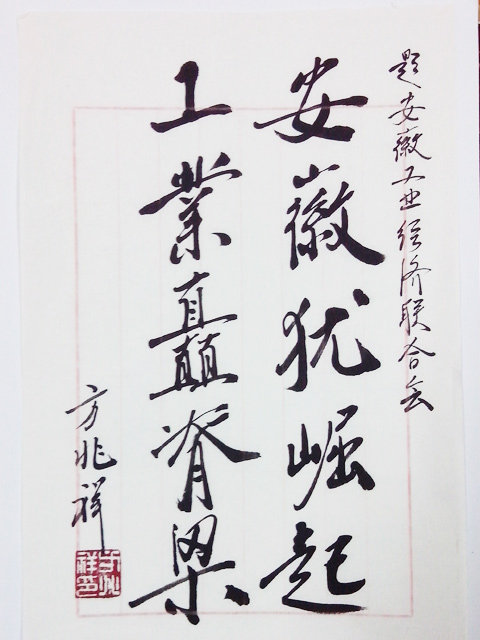 题安徽工业经济联合会
安徽犹崛起
工業矗脊梁
方兆祥
方兆
祥印